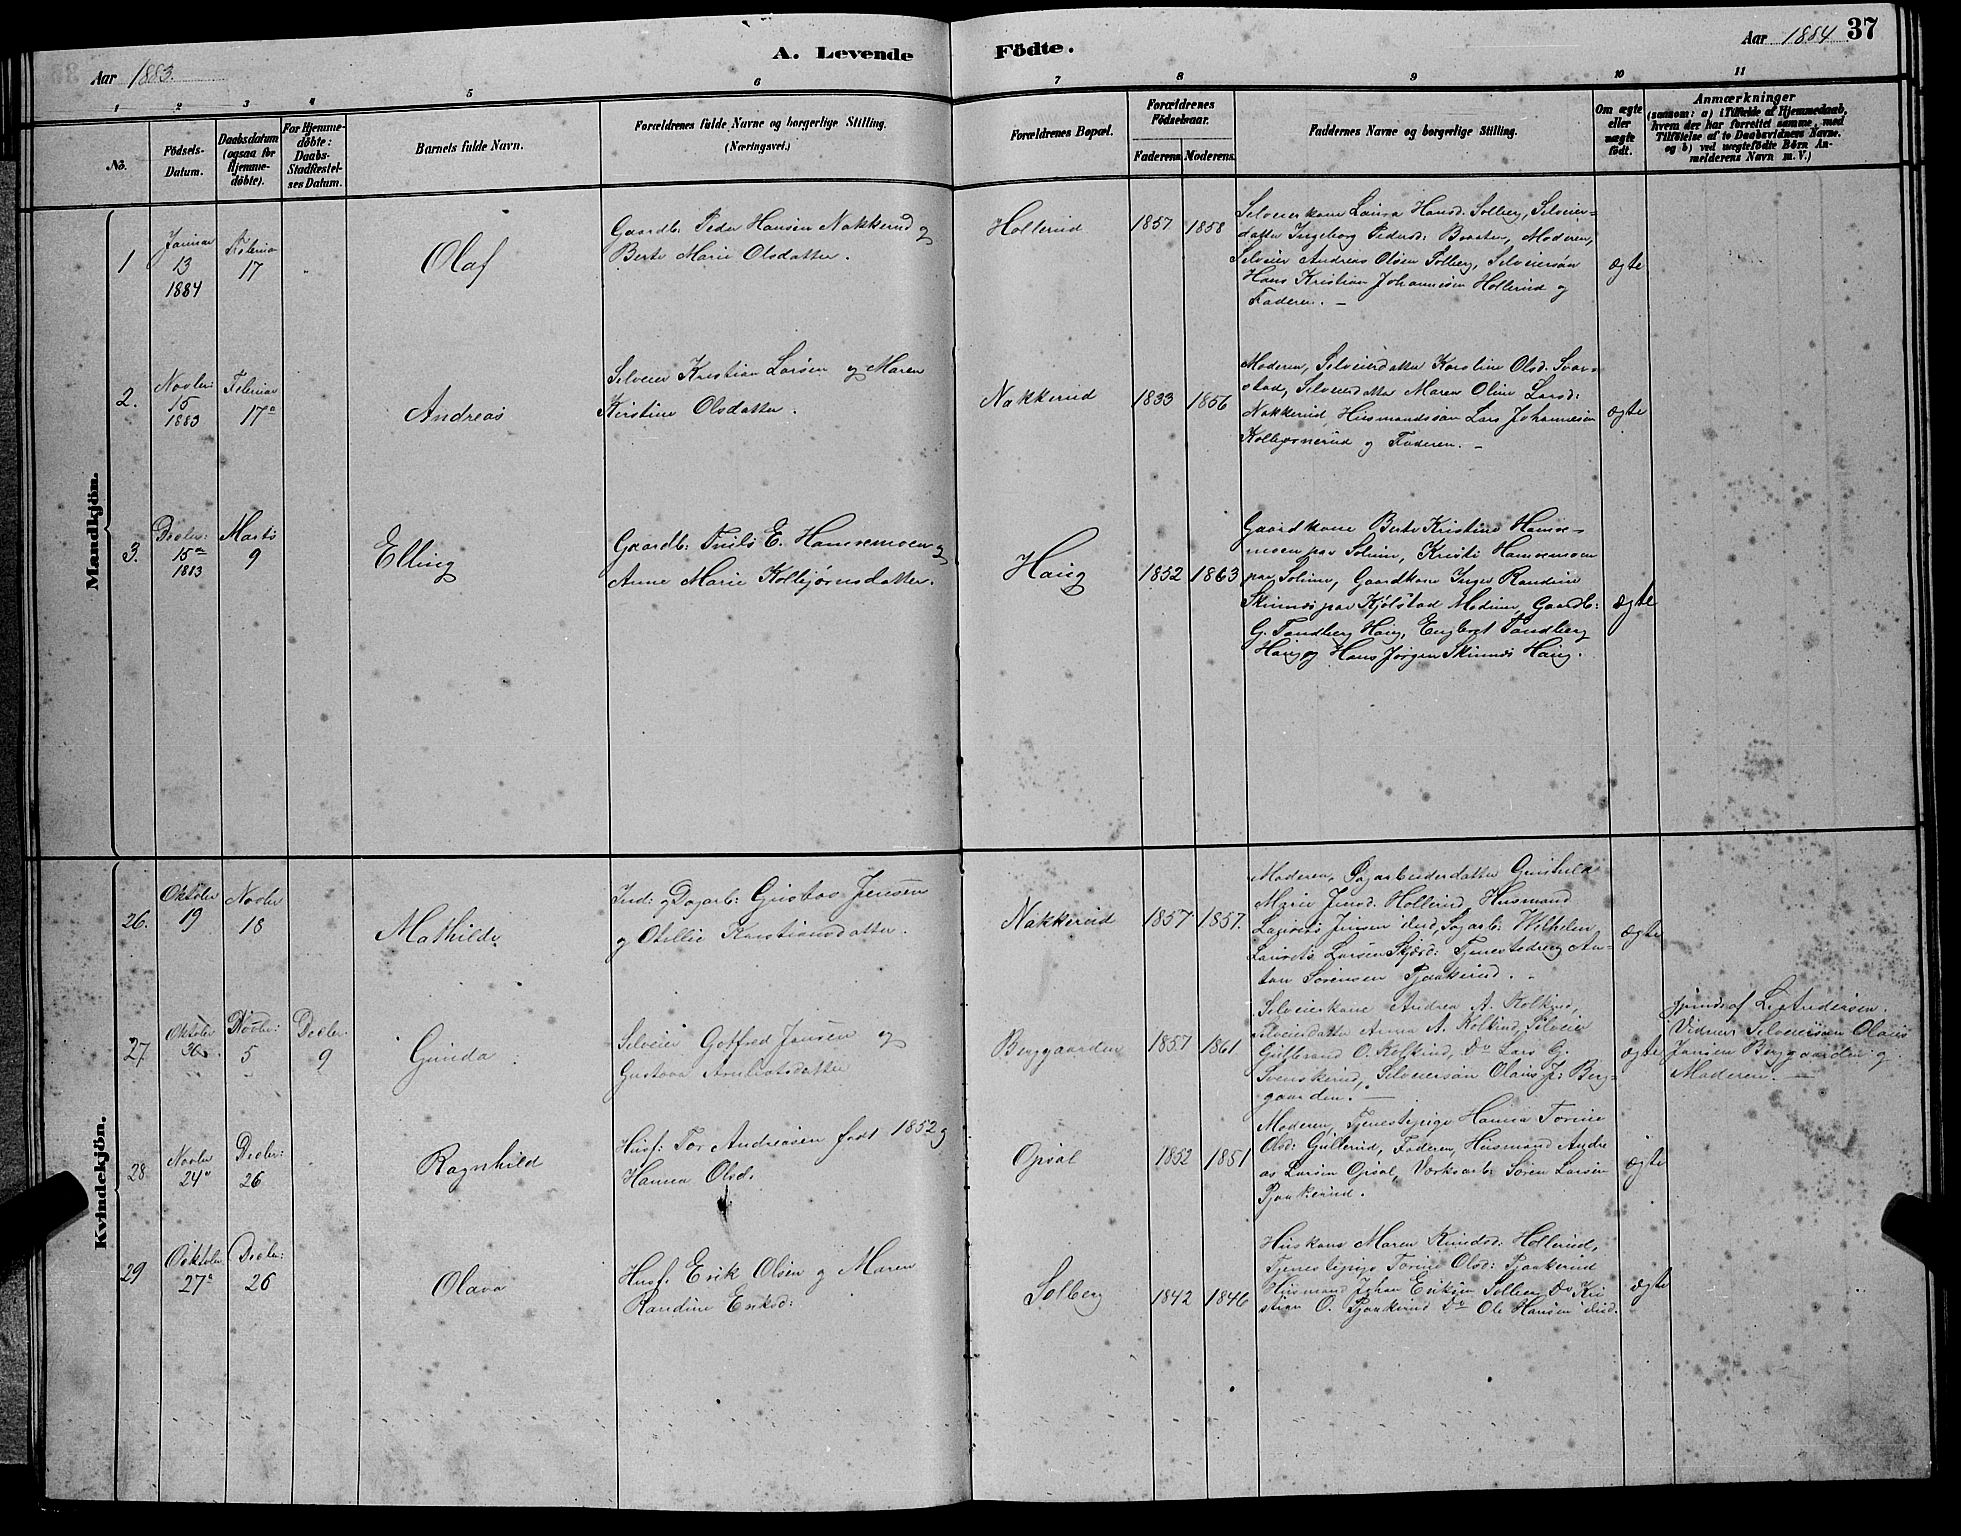 A. Levende Födte.
Aar 1883.
Aar 1884
37
1 2 3 4 5 6 7 8 9 10 11
No.
Födsels-
Datum.
Daabsdatum
(ogsaa for
Hjemme-
döbte).
For Hjemme-
döbte:
Daabs-
Stadfæstel-
ses Datum.
Barnets fulde Navn.
Forældrenes fulde Navne og borgerlige Stilling.
(Næringsvei.)
Forældrenes Bopæl.
Forældrenes
Födselsaar.
Faderens. Moderens.
Faddernes Navne og borgerlige Stilling.
Om ægte
eller
uægte
födt.
Anmærkninger
(saasom: a) i Tilfælde af Hjemmedaab,
hvem der har forrettet samme, med
Tilföielse af to Daabsvidners Navne.
og b) ved uægtefödte Börn An-
melderens Navn m. V.)
Mandkjön.
1
Januar
13
1884
Februar
17
Olaf
Gaardb. Peder Hansen Nakkerud og
Berte Marie Olsdatter.
Hollerud
1857 1858
Selveierkone Laura Hansd. Solberg, Selveier-
datter Ingeborg Pedersd: Braaten, Moderen,
Selveier Andreas Olsen Solberg, Selveiersøn
Hans Kristian Johannesen Hollerud og
Faderen. —
ægte
2.
Novbr:
15
1883
Februar
17
Andreas
Selveier Kristian Larsen og Maren
Kirstine Olsdatter.
Nakkerud
1833 1856
Moderen, Selveierdatter Karoline Olsd. Svar-
stad, Selveierdatter Maren Oline Larsd:
Nakkerud, Husmandssøn Lars Johannesen
Kolbjørnerud og Faderen. —
ægte
3.
Decbr:
15
1883
Marts
9
Elling
Gaardb: Truls E. Hamremoen og
Anne Marie Kolbjørnsdatter.
Haug
1852 1863
Gaardkone Berte Kristine Hamre-
moen paa Solum, Kristi Hamremoen
paa Solum, Gaardkone Inger Randine
Skinnes paa Kjølstad Modum, Gaardb:
G. Tandberg Haug, Engebret Tandberg
Haug og Hans Jørgen Skinnes Haug.
ægte
Kvindekjön.
26.
Oktober
19
Novbr
18
Mathilde
Ind: og Dagarb: Gustav Jensen
og Otellie Kristiansdatter.
Nakkerud
1857 1857.
Moderen, Sagarbeiderdatter Gunhild
Marie Jensd. Hollerud, Husmand
Laurits Jensen ibid, Sagarb: Wilhelm
Laurits Larsen Skjærd: Tjenestedreng An-
ton Sørensen Pjaakerud.
ægte
27.
Oktober
30
Novbr:
5
Decbr
9
Gunda
Selveier Gotfred Jansen og
Gustava Arnbjørnsdatter
Berggaarden
1857 1861
Selveierkone Andrea A. Kolkind,
Selveierdatter Anna A. Kolkind, Selveier
Gulbrand O. Kolkind, Do Lars G.
Svenskerud, Selveiersøn Olaus J: Berg-
gaarden. —
ægte
Andersen.
Vidner Selveiersøn Olaus
Jansen Berggaarden og
Moderen. —
28
Novbr
24
Decbr:
26
Ragnhild
Husf: Tor Andreasen født 1852 og
Hanna Olsd.
Opsal
1852 1851
Moderen, Tjenestepige Hanna Torine
Olsd: Gullerud, Faderen, Husmand Andre
as Larsen Opsal, Værksarb: Søren Larsen
Pjaakerud.
ægte
29
Ocktober
27
Decbr:
26
Olava
Husf. Erik Olsen og Maren
Randine Eriksd:
Solberg
1842 1846
Huskone Maren Knudsd: Hollerud,
Tjenestepige Torine Olsd: Pjaakerud
Husmand Johan Eriksen Solberg Do Kri
stian O. Pjaakerud Do Ole Hansen ibid.
ægte